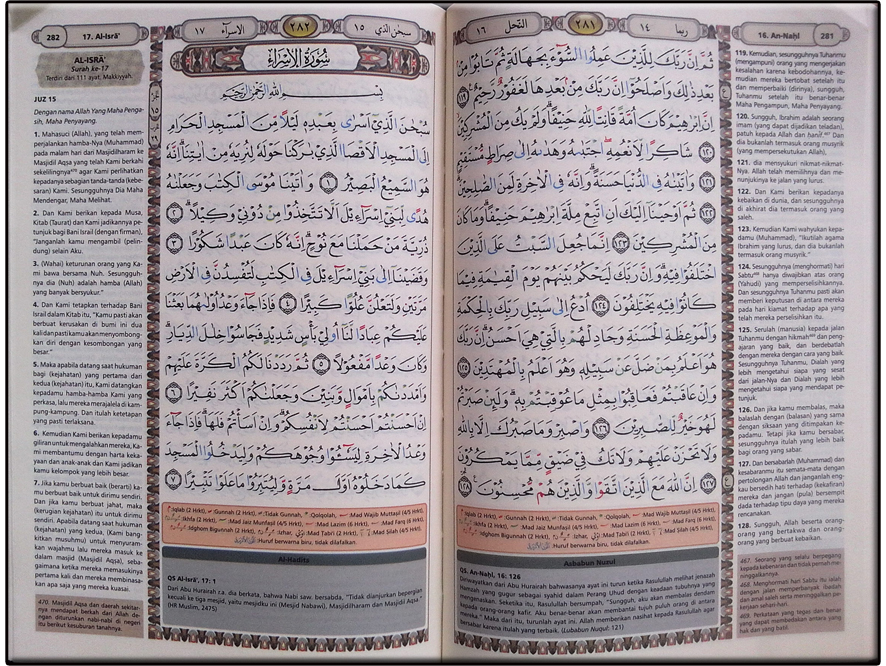 ربما ١٤
٢٨١
النّحل ١٦
16. An-Naḥl 281
ثُمَّ اِنَّ رَبَّكَ لِلَّذِيْنَ عَمِلُوا السُّوْۤءَ بِجَهَالَةٍ ثُمَّ تَابُوْا مِنْۢ
بَعْدِ ذٰلِكَ وَاَصْلَحُوْٓا اِنَّ رَبَّكَ مِنْۢ بَعْدِهَا لَغَفُوْرٌ رَّحِيْمٌ ١١٩
اِنَّ اِبْرٰهِيْمَ كَانَ اُمَّةً قَانِتًا لِّلّٰهِ حَنِيْفًاۗ وَلَمْ يَكُ مِنَ الْمُشْرِكِيْنَ
١٢٠ شَاكِرًا لِّاَنْعُمِهِۗ اِجْتَبٰىهُ وَهَدٰىهُ اِلٰى صِرَاطٍ مُّسْتَقِيْمٍ
١٢١ وَاٰتَيْنٰهُ فِى الدُّنْيَا حَسَنَةً ۗوَاِنَّهٗ فِى الْاٰخِرَةِ لَمِنَ الصّٰلِحِيْنَ
١٢٢ ثُمَّ اَوْحَيْنَآ اِلَيْكَ اَنِ اتَّبِعْ مِلَّةَ اِبْرٰهِيْمَ حَنِيْفًاۗ وَمَا كَانَ
مِنَ الْمُشْرِكِيْنَ ١٢٣ اِنَّمَا جُعِلَ السَّبْتُ عَلَى الَّذِيْنَ
اخْتَلَفُوْا فِيْهِۗ وَاِنَّ رَبَّكَ لَيَحْكُمُ بَيْنَهُمْ يَوْمَ الْقِيٰمَةِ فِيْمَا
كَانُوْا فِيْهِ يَخْتَلِفُوْنَ ١٢٤ اُدْعُ اِلٰى سَبِيْلِ رَبِّكَ بِالْحِكْمَةِ
وَالْمَوْعِظَةِ الْحَسَنَةِ وَجَادِلْهُمْ بِالَّتِيْ هِيَ اَحْسَنُۗ اِنَّ رَبَّكَ
هُوَ اَعْلَمُ بِمَنْ ضَلَّ عَنْ سَبِيْلِهٖ وَهُوَ اَعْلَمُ بِالْمُهْتَدِيْنَ ١٢٥
وَاِنْ عَاقَبْتُمْ فَعَاقِبُوْا بِمِثْلِ مَا عُوْقِبْتُمْ بِهٖۗ وَلَىِٕنْ صَبَرْتُمْ
لَهُوَ خَيْرٌ لِّلصّٰبِرِيْنَ ١٢٦ وَاصْبِرْ وَمَا صَبْرُكَ اِلَّا بِاللّٰهِ
وَلَا تَحْزَنْ عَلَيْهِمْ وَلَا تَكُ فِيْ ضَيْقٍ مِّمَّا يَمْكُرُوْنَ
١٢٧ اِنَّ اللّٰهَ مَعَ الَّذِيْنَ اتَّقَوْا وَّالَّذِيْنَ هُمْ مُّحْسِنُوْنَ ١٢٨
119. Kemudian, sesungguhnya Tuhanmu
(mengampuni) orang yang mengerjakan
kesalahan karena kebodohannya, ke-
mudian mereka bertobat setelah itu
dan memperbaiki (dirinya), sungguh,
Tuhanmu setelah itu benar-benar
Maha Pengampun, Maha Penyayang.
120. Sungguh, Ibrahim adalah seorang
imam (yang dapat dijadikan teladan),
patuh kepada Allah dan hanif. Dan
dia bukanlah termasuk orang musyrik
(yang mempersekutukan Allah),
121. dia mensyukuri nikmat-nikmat-
Nya. Allah telah memilihnya dan me-
nunjukinya ke jalan yang lurus.
122. Dan Kami berikan kepadanya
kebaikan di dunia, dan sesungguhnya
di akhirat dia termasuk orang yang
saleh.
123. Kemudian Kami wahyukan kepa-
damu (Muhammad), "Ikutilah agama
Ibrahim yang lurus, dan dia bukanlah
termasuk orang musyrik."
124. Sesungguhnya (menghormati) hari
Sabtu hanya diwajibkan atas orang
(Yahudi) yang memperselisihkannya.
Dan sesungguhnya Tuhanmu pasti akan
memberi keputusan di antara mereka
pada hari Kiamat terhadap apa yang
telah mereka perselisihkan itu.
125. Serulah (manusia) kepada jalan
Tuhanmu dengan hikmah dan pen-
gajaran yang baik, dan berdebatlah
dengan mereka dengan cara yang baik.
Sesungguhnya Tuhanmu, Dialah yang
lebih mengetahui siapa yang sesat
dari jalan-Nya dan Dialah yang lebih
mengetahui siapa yang mendapat pe-
tunjuk.
126. Dan jika kamu membalas, maka
balaslah dengan (balasan) yang sama
dengan siksaan yang ditimpakan ke-
padamu. Tetapi jika kamu bersabar,
sesungguhnya itulah yang lebih baik
bagi orang yang sabar.
127. Dan bersabarlah (Muhammad) dan
kesabaranmu itu semata-mata dengan
pertolongan Allah dan janganlah eng-
kau bersedih hati terhadap (kekafiran)
mereka dan jangan (pula) bersempit
dada terhadap tipu daya yang mereka
rencanakan.
128. Sungguh, Allah beserta orang-
orang yang bertakwa dan orang-
orang yang berbuat kebaikan.
467. Seorang yang selalu berpegang
kepada kebenaran dan tidak pernah me-
ninggalkannya.
468. Menghormati hari Sabtu itu ialah
dengan jalan memperbanyak ibadah
dan amal saleh serta meninggalkan pe-
kerjaan sehari-hari.
469. Perkataan yang tegas dan benar
yang dapat membedakan antara yang
hak dan yang batil.
Iqlab (2 Hrkt), Gunnah (2 Hrkt), Tidak Gunnah, Qolqolah, Mad Wajib Muttasil (4/5 Hrkt),
Ikhfa (2 Hrkt), Mad Jaiz Munfasil (4/5 Hrkt), Mad Lazim (6 Hrkt), Mad Farq (6 Hrkt)
Idghom Bigunnah (2 Hrkt), Izhar, Mad Tabi'i (2 Hrkt), Mad Silah (4/5 Hrkt),
Huruf berwarna biru, tidak dilafalkan.
Asbabun Nuzul
QS. An-Naḥl, 16: 126
Diriwayatkan dari Abu Hurairah bahwasanya ayat ini turun ketika Rasulullah melihat jenazah
Hamzah yang gugur sebagai syahid dalam Perang Uhud dengan keadaan tubuhnya yang
mengenaskan. Seketika itu, Rasulullah bersumpah, "Sungguh, aku akan membalas dendam
kepada orang-orang kafir. Aku benar-benar akan membantai tujuh puluh orang di antara
mereka." Maka dari itu, turunlah ayat ini. Allah memberikan nasihat kepada Rasulullah agar
bersabar karena itulah yang terbaik. (Lubabun Nuqul: 121)
282 17. Al-Isrā'
الاسراۤء ١٧
٢٨٢
سبحٰن الذي ١٥
سُوْرَةُ الْاِسْرَاۤءِ
بِسْمِ اللّٰهِ الرَّحْمٰنِ الرَّحِيْمِ
سُبْحٰنَ الَّذِيْٓ اَسْرٰى بِعَبْدِهٖ لَيْلًا مِّنَ الْمَسْجِدِ الْحَرَامِ
اِلَى الْمَسْجِدِ الْاَقْصَا الَّذِيْ بٰرَكْنَا حَوْلَهٗ لِنُرِيَهٗ مِنْ اٰيٰتِنَاۗ اِنَّهٗ
هُوَ السَّمِيْعُ الْبَصِيْرُ ١ وَاٰتَيْنَا مُوْسَى الْكِتٰبَ وَجَعَلْنٰهُ
هُدًى لِّبَنِيْٓ اِسْرَاۤءِيْلَ اَلَّا تَتَّخِذُوْا مِنْ دُوْنِيْ وَكِيْلًاۗ ٢
ذُرِّيَّةَ مَنْ حَمَلْنَا مَعَ نُوْحٍۗ اِنَّهٗ كَانَ عَبْدًا شَكُوْرًا ٣
وَقَضَيْنَآ اِلٰى بَنِيْٓ اِسْرَاۤءِيْلَ فِى الْكِتٰبِ لَتُفْسِدُنَّ فِى الْاَرْضِ
مَرَّتَيْنِ وَلَتَعْلُنَّ عُلُوًّا كَبِيْرًا ٤ فَاِذَا جَاۤءَ وَعْدُ اُوْلٰىهُمَا بَعَثْنَا
عَلَيْكُمْ عِبَادًا لَّنَآ اُولِيْ بَأْسٍ شَدِيْدٍ فَجَاسُوْا خِلٰلَ الدِّيَارِۗ
وَكَانَ وَعْدًا مَّفْعُوْلًا ٥ ثُمَّ رَدَدْنَا لَكُمُ الْكَرَّةَ عَلَيْهِمْ
وَاَمْدَدْنٰكُمْ بِاَمْوَالٍ وَّبَنِيْنَ وَجَعَلْنٰكُمْ اَكْثَرَ نَفِيْرًا ٦
اِنْ اَحْسَنْتُمْ اَحْسَنْتُمْ لِاَنْفُسِكُمْۗ وَاِنْ اَسَأْتُمْ فَلَهَاۗ فَاِذَا جَاۤءَ
وَعْدُ الْاٰخِرَةِ لِيَسٗۤـُٔوْا وُجُوْهَكُمْ وَلِيَدْخُلُوا الْمَسْجِدَ
كَمَا دَخَلُوْهُ اَوَّلَ مَرَّةٍ وَّلِيُتَبِّرُوْا مَا عَلَوْا تَتْبِيْرًا ٧
AL-ISRĀ'
Surah ke-17
Terdiri dari 111 ayat, Makkiyyah.
JUZ 15
Dengan nama Allah Yang Maha Penga-
sih, Maha Penyayang.
1. Mahasuci (Allah), yang telah mem-
perjalankan hamba-Nya (Muhammad)
pada malam hari dari Masjidilharam ke
Masjidil Aqsa yang telah Kami berkahi
sekelilingnya agar Kami perlihatkan
kepadanya sebagian tanda-tanda (kebe-
saran) Kami. Sesungguhnya Dia Maha
Mendengar, Maha Melihat.
2. Dan Kami berikan kepada Musa,
Kitab (Taurat) dan Kami jadikannya pe-
tunjuk bagi Bani Israil (dengan firman),
"Janganlah kamu mengambil (pelin-
dung) selain Aku.
3. (Wahai) keturunan orang yang Ka-
mi bawa bersama Nuh. Sesungguh-
nya dia (Nuh) adalah hamba (Allah)
yang banyak bersyukur."
4. Dan Kami tetapkan terhadap Bani
Israil dalam Kitab itu, "Kamu pasti akan
berbuat kerusakan di bumi ini dua
kali dan pasti kamu akan menyombong-
kan diri dengan kesombongan yang
besar."
5. Maka apabila datang saat hukuman
bagi (kejahatan) yang pertama dari
kedua (kejahatan) itu, Kami datangkan
kepadamu hamba-hamba Kami yang
perkasa, lalu mereka merajalela di kam-
pung-kampung. Dan itulah ketetapan
yang pasti terlaksana.
6. Kemudian Kami berikan kepadamu
giliran untuk mengalahkan mereka, Ka-
mi membantumu dengan harta keka-
yaan dan anak-anak dan Kami jadikan
kamu kelompok yang lebih besar.
7. Jika kamu berbuat baik (berarti) ka-
mu berbuat baik untuk dirimu sendiri.
Dan jika kamu berbuat jahat, maka
(kerugian kejahatan) itu untuk dirimu
sendiri. Apabila datang saat hukuman
(kejahatan) yang kedua, (Kami bang-
kitkan musuhmu) untuk menyuram-
kan wajahmu lalu mereka masuk ke
dalam masjid (Masjidil Aqsa), seba-
gaimana ketika mereka memasukinya
pertama kali dan mereka membinasa-
kan apa saja yang mereka kuasai.
470. Masjidil Aqsa dan daerah sekitar-
nya mendapat berkah dari Allah de-
ngan diturunkan nabi-nabi di negeri
itu berikut kesuburan tanahnya.
Iqlab (2 Hrkt), Gunnah (2 Hrkt), Tidak Gunnah, Qolqolah, Mad Wajib Muttasil (4/5 Hrkt),
Ikhfa (2 Hrkt), Mad Jaiz Munfasil (4/5 Hrkt), Mad Lazim (6 Hrkt), Mad Farq (6 Hrkt)
Idghom Bigunnah (2 Hrkt), Izhar, Mad Tabi'i (2 Hrkt), Mad Silah (4/5 Hrkt),
Huruf berwarna biru, tidak dilafalkan.
Al-Hadits
QS Al-Isrā', 17: 1
Dari Abu Hurairah r.a. dia berkata, bahwa Nabi saw. bersabda, "Tidak dianjurkan bepergian
kecuali ke tiga mesjid, yaitu mesjidku ini (Mesjid Nabawi), Masjidilharam dan Masjidil Aqsa."
(HR Muslim, 2475)